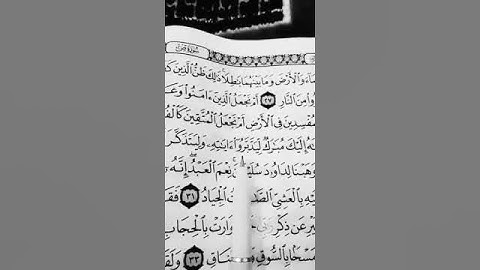 سُورَةُ صٓ
وَٱلْأَرْضَ وَمَا بَيْنَهُمَا بَٰطِلًا ذَٰلِكَ ظَنُّ ٱلَّذِينَ كَ
وا۟ مِنَ ٱلنَّارِ ٢٧ أَمْ نَجْعَلُ ٱلَّذِينَ ءَامَنُوا۟ وَعَ
مُفْسِدِينَ فِى ٱلْأَرْضِ أَمْ نَجْعَلُ ٱلْمُتَّقِينَ كَٱلْفُ
نَٰهُ إِلَيْكَ مُبَٰرَكٌ لِّيَدَّبَّرُوٓا۟ ءَايَٰتِهِۦ وَلِيَتَذَكَّرَ
وَهَبْنَا لِدَاوُۥدَ سُلَيْ نِعْمَ ٱلْعَبْدُ إِنَّهُۥ
يْهِ بِٱلْعَشِىِّ ٱلصَّ تُ ٱلْجِيَادُ ٣١ فَقَا
يْرِ عَن ذِكْرِ رَبِّى وَارَتْ بِٱلْحِجَابِ
مَسْحًۢا بِٱلسُّوقِ نَاقِ ٣٣ وَلَقَ